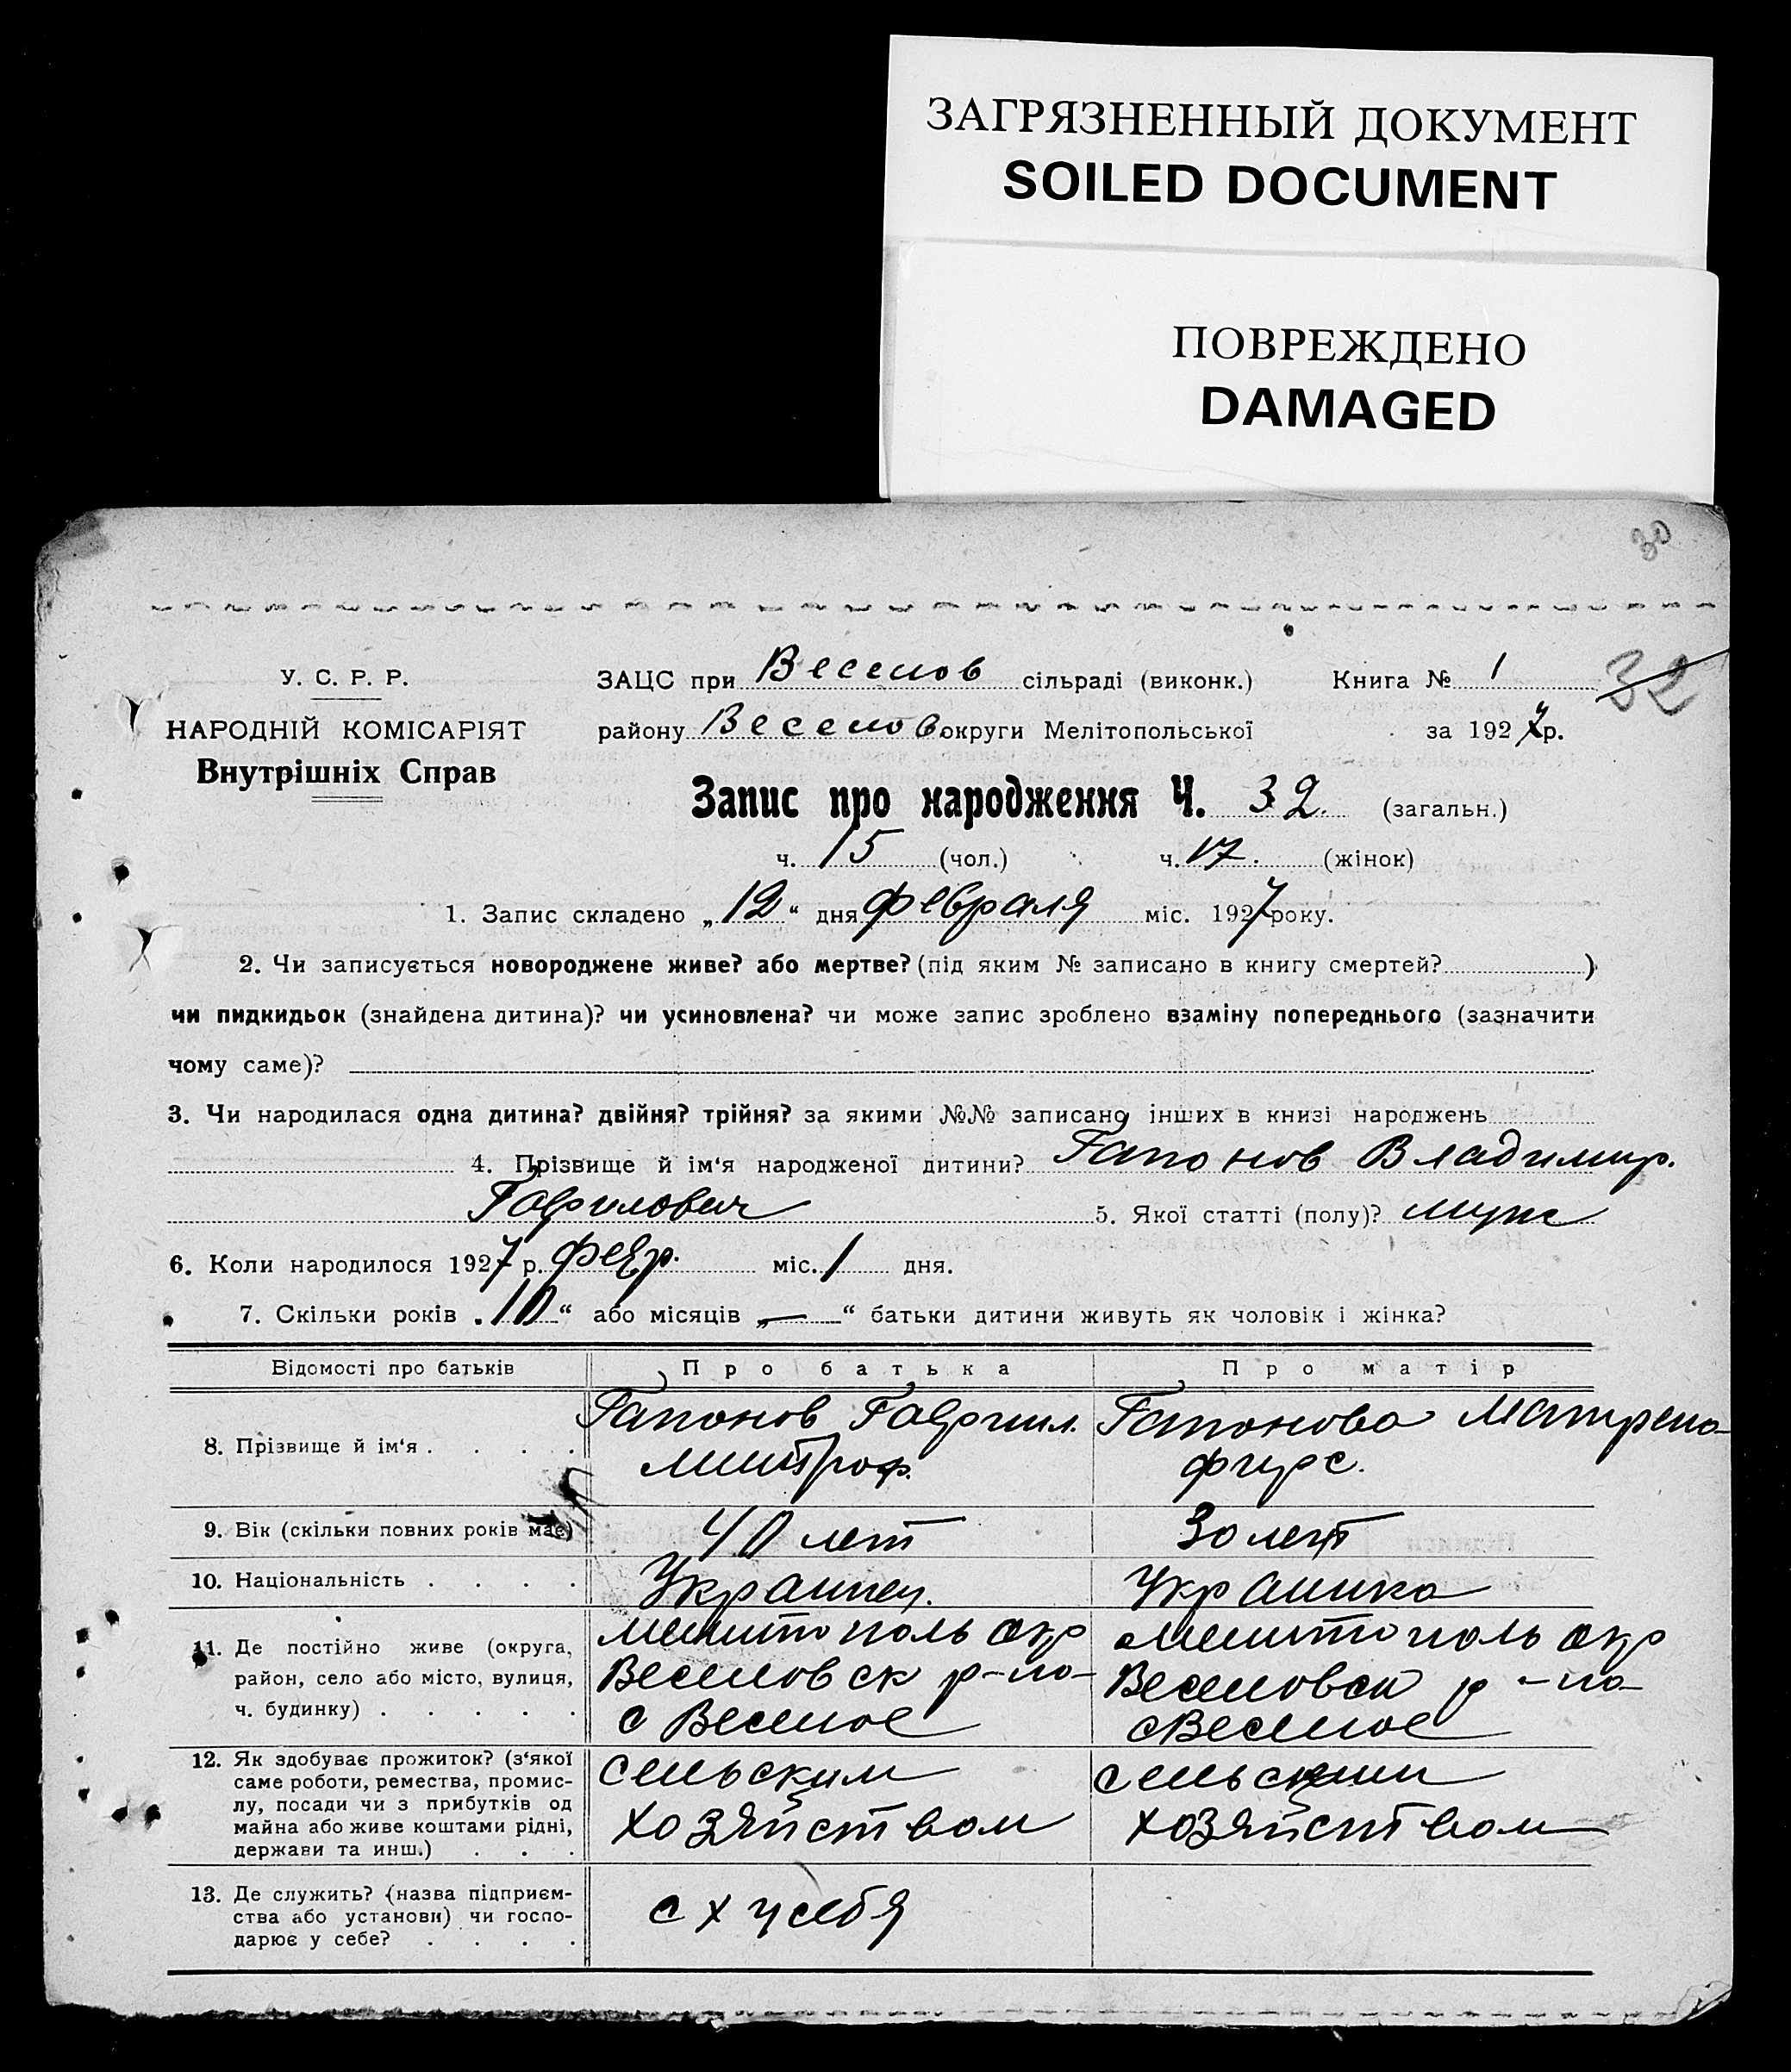 ЗАГРЯЗНЕННЫЙ ДОКУМЕНТ
SOILED DOCUMENT
ПОВРЕЖДЕНО
DAMAGED
30
32
У. С. Р. Р.
НАРОДНІЙ КОМІСАРІЯТ
Внутрішніх Справ
ЗАЦС при Веселов сільраді (виконк.) Книга № 1
району Веселов округи Мелітопольської за 1927 р.
Запис про народження Ч. 32. (загальн.)
ч. 15 (чол.) ч. 17. (жінок)
1. Запис складено „12“ дня февраля міс. 1927 року.
2. Чи записується новороджене живе? або мертве? (під яким № записано в книгу смертей? )
чи пидкидьок (знайдена дитина)? чи усиновлена? чи може запис зроблено взаміну попереднього (зазначити
чому саме)?
3. Чи народилася одна дитина? двійня? трійня? за якими №№ записано інших в книзі народжень
4. Прізвище й ім‘я народженої дитини? Гапонов Владимир.
Гаврилович 5. Якої статті (полу)? муж
6. Коли народилося 1927 р. февр. міс. 1 дня.
7. Скільки років „10“ або місяців „—“ батьки дитини живуть як чоловік і жінка?
Відомості про батьків Про батька Про матір
8. Прізвище й ім‘я . . . .
Гапонов Гавриил.
Митроф.
Гапонова Матрена
фирс.
9. Вік (скільки повних років має)
40 лет
30 лет
10. Національність . . . .
Украинец.
Украинка
11. Де постійно живе (округа,
район, село або місто, вулиця,
ч. будинку) . . . . .
Мелитополь окр
Веселовск р-на
с Веселое
Мелитополь окр
Веселовск р-на
с Веселое
12. Як здобуває прожиток? (з‘якої
саме роботи, ремества, промис-
лу, посади чи з прибутків од
майна або живе коштами рідні,
держави та инш.) . . .
Сельским
хозяйством
Сельским
хозяйством
13. Де служить? (назва підприєм-
ства або установи) чи госпо-
дарює у себе? . . . .
с х у себя